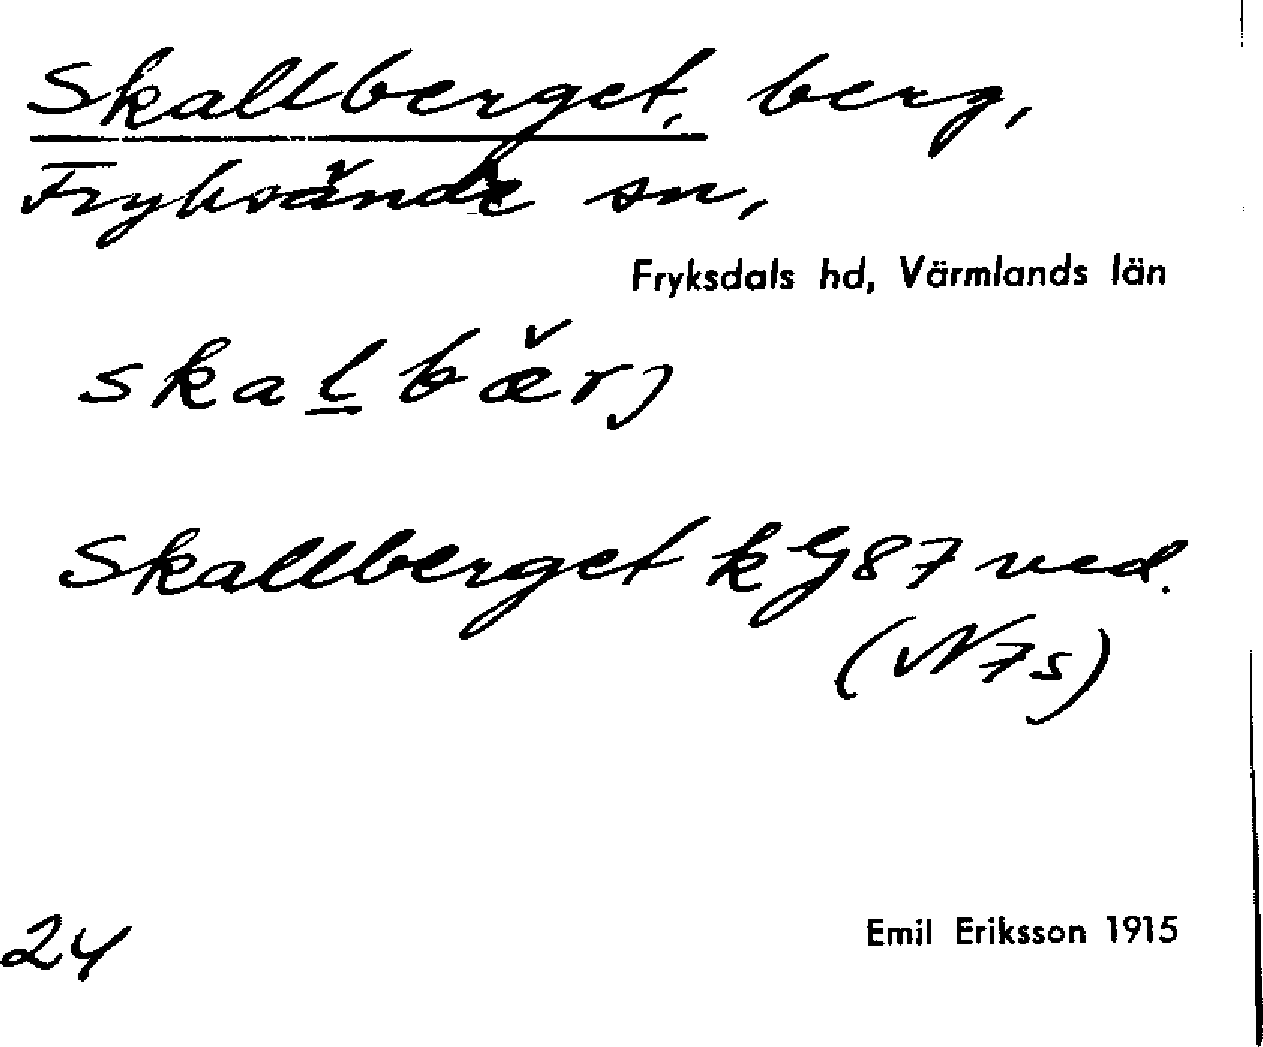 Skallberget, berg,
Fryksände sn,
Fryksdals hd, Värmlands län
skal̲bæ̌rj
Skallberget kG87 ved.
(N7s)
24
Emil Eriksson 1915